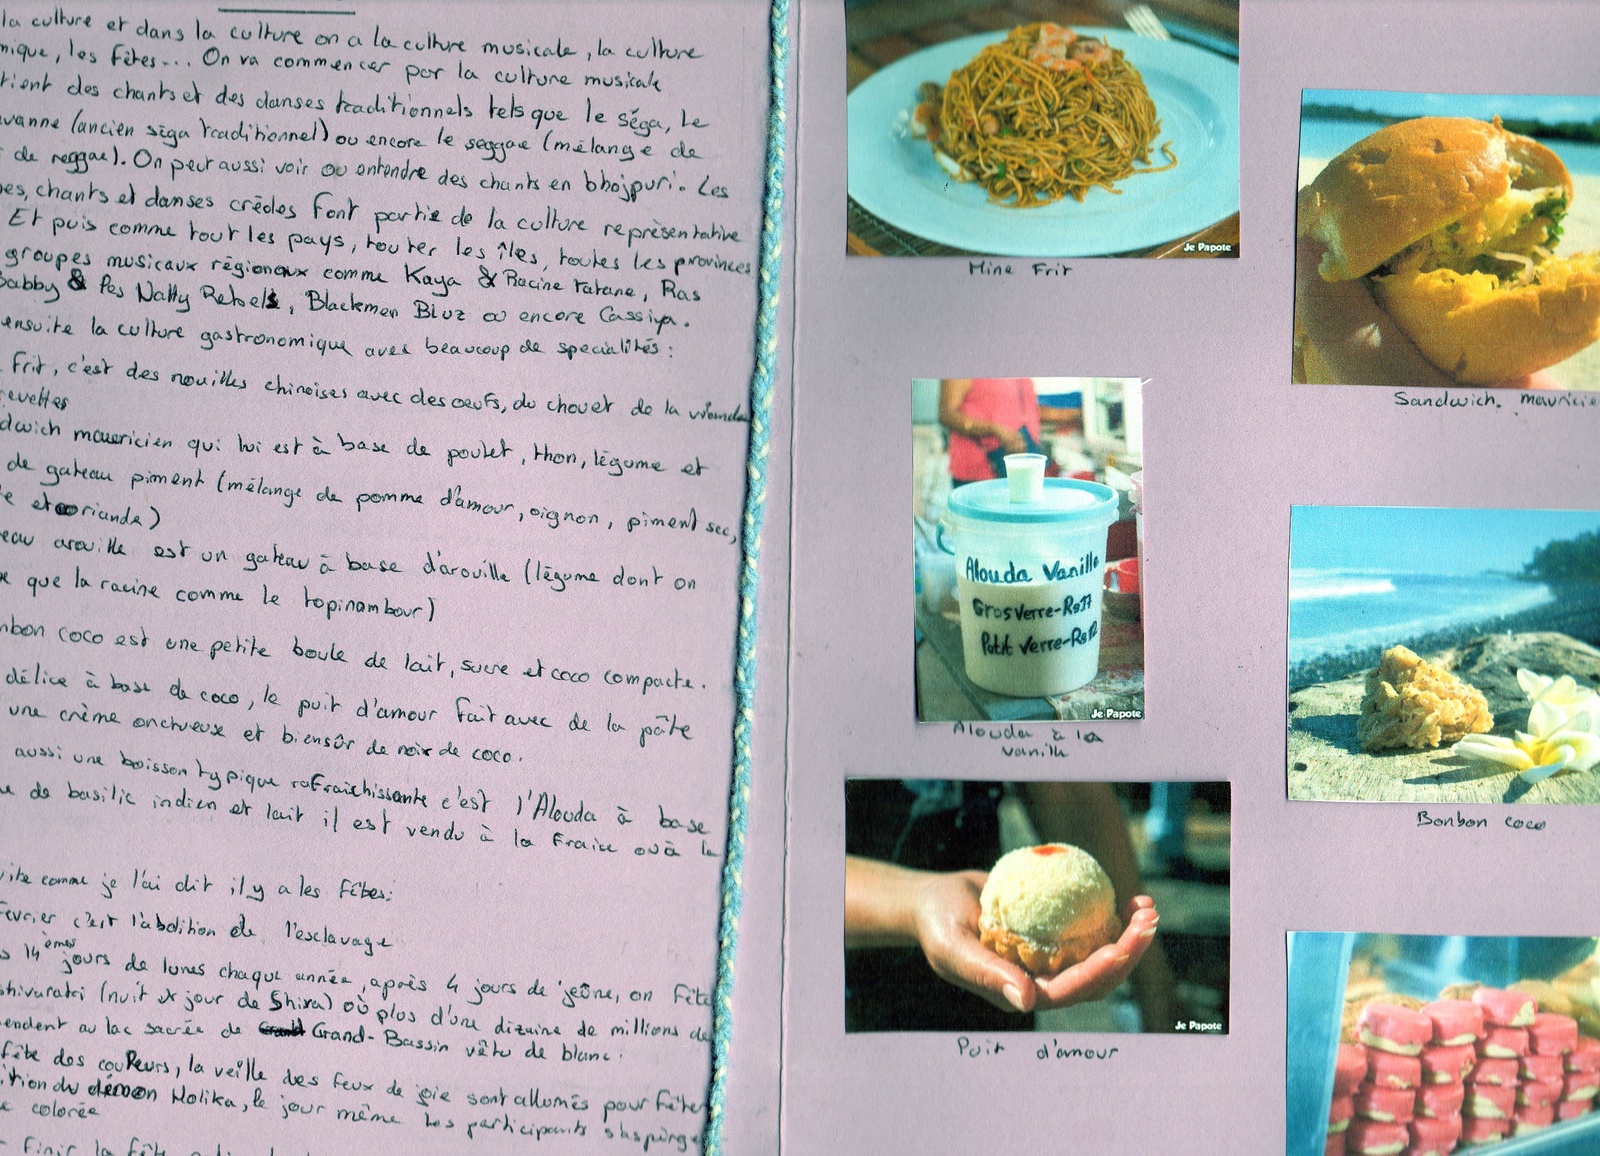 la culture et dans la culture on a la culture musicale, la culture
mique, les fêtes... On va commencer par la culture musicale
tient des chants et des danses traditionnels tels que le séga, le
vanne (ancien séga traditionnel) ou encore le seggae (mélange de
de reggae). On peut aussi voir ou entendre des chants en bhojpuri. Les
es, chants et danses créoles font partie de la culture représentative
Et puis comme tout les pays, toutes les îles, toutes les provinces
groupes musicaux régionaux comme Kaya & Racine tatane, Ras
& Natty Rebels, Blackmen Bluz ou encore Cassiya.
ensuite la culture gastronomique avec beaucoup de spécialités :
Frit, c'est des nouilles chinoises avec des oeufs, du chou et de la viande
revettes
dwich mauricien qui lui est à base de poulet, thon, légume et
de gateau piment (mélange de pomme d'amour, oignon, piment sec,
et coriande)
eau arouille est un gateau à base d'arouille (légume dont on
que la racine comme le topinambour)
nbon coco est une petite boule de lait, sucre et coco compacte.
délice à base de coco, le puit d'amour fait avec de la pâte
une crème onctueuse et biensûr de noix de coco.
aussi une boisson typique rafraichissante c'est l'Alouda à base
de basilic indien et lait il est vendu à la fraise ou à la
ite comme je l'ai dit il y a les fêtes:
Février c'est l'abolition de l'esclavage
s 14èmes jours de lunes chaque année, après 4 jours de jeûne, on fête
shivaratri (nuit et jour de Shiva) où plus d'une dizaine de millions de
endent au lac sacrée de Grand-Bassin vêtu de blanc.
fête des couleurs, la veille des feux de joie sont allumés pour fêter
ition du démon Holika, le jour même les participants s'asperge
colorée
finir la fête
Je Papote
Mine Frit
Sandwich mauricie
Alouda Vanille
Gros Verre-Rs17
Petit Verre-Rs12
Je Papote
Alouda à la
vanille
Bonbon coco
Je Papote
Puit d'amour